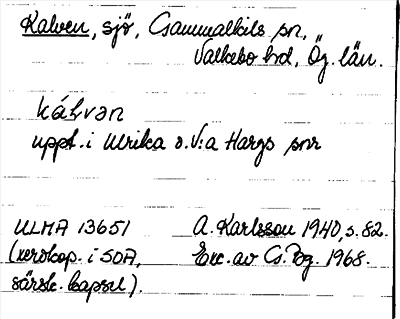 Kalven, sjö, Gammalkils sn,
Valkebo hd, Ög. län.
kálvən
uppt. i Ulrika o. V:a Hargs snr
ULMA 13651 A. Karlsson 1940, s. 82.
(xerokop. i SOA, Exc. av Cs. Bg. 1968.
särsk. kapsel).